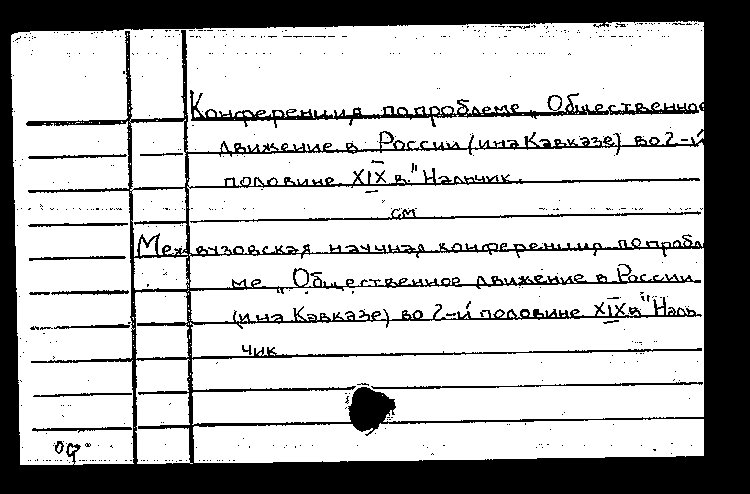 Конференция по проблеме „Общественное
движение в России (и на Кавказе) во 2-й
половине XIX в." Нальчик.
см
Межвузовская научная конференция по пробл
ме „Общественное движение в России
(и на Кавказе) во 2-й половине XIX в." Наль
чик